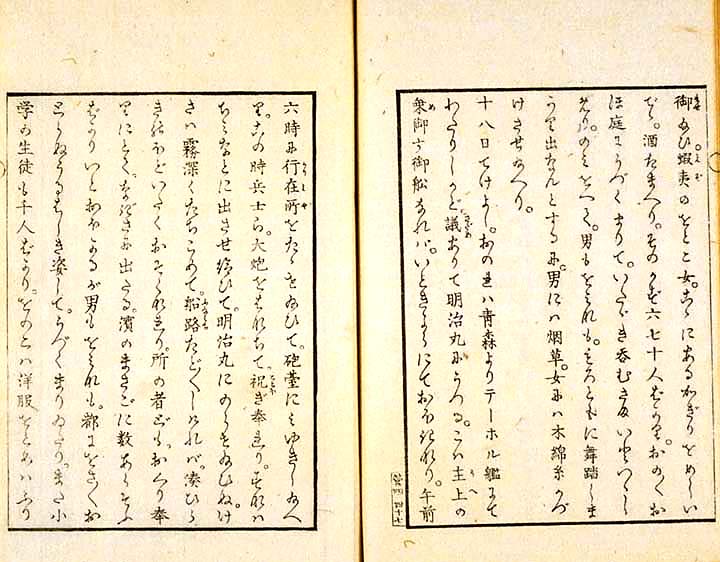 御給ひ蝦夷のをとこ女。こゝにあるかぎりをめしい
でゝ。酒たまへり。そのかず六七十人ばかり。おの〳〵お
ほ庭にうづくまりて。いたゞき呑むさまいといつくし
のみをへて。男もをみなも。もろともに舞踏しま
出なんとするに。男には烟草。女には木綿糸かづ
けさせ給へり。
十八日てけよし。おのれは青森よりテーホル艦にて
わたりしかど議ありて明治丸にうつる。こは主上の
乗御す御船なれば。いときよらにておほきなり。午前
六時に行在所をたゝせ給ひて。砲臺にみゆきし給へ
り。この時兵士ら。大炮をはなちて。祝ぎ奉れり。それ
みなとに出させ給ひて。明治丸にのらせ給ひぬ。け
さは霧深くたちこめて。船路たど〳〵しければ。湊ひら
きいたくおそくなれり。所の者ども。おくり奉
りにとて。なぎさに出たる。濱のまさごに数あらそふ
ばかりいとおほかるが男もをみなも。都にをさ〳〵お
とらぬうるはしき姿して。うづくまりゐたり。また小
学の生徒も千人ばかり。をのこは洋服をとめは